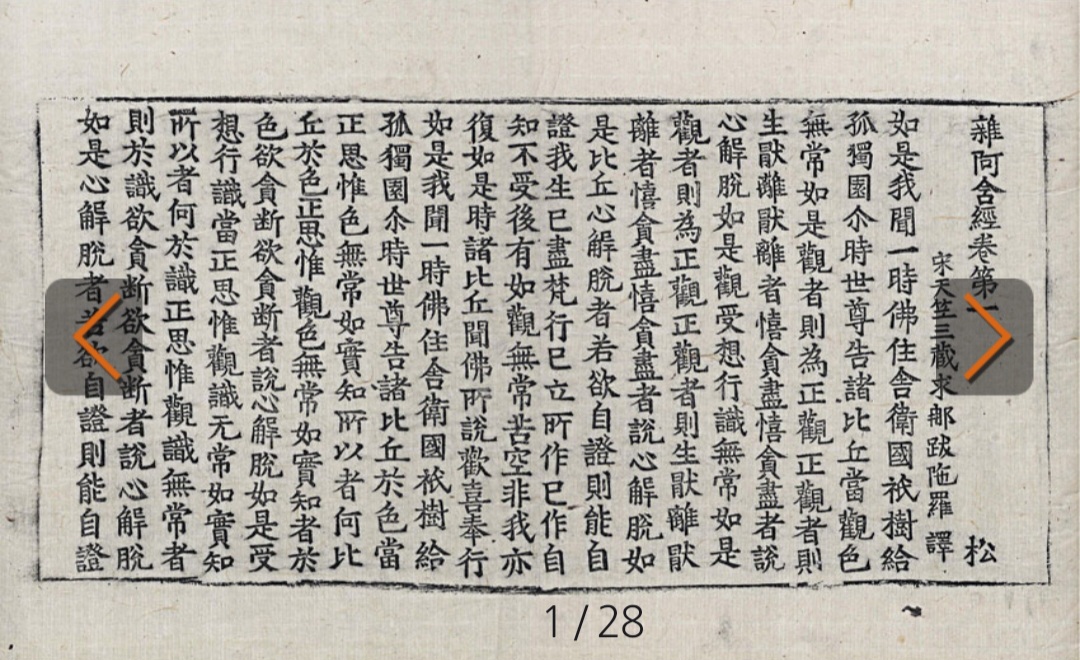 雜阿含經卷第一 松
宋天竺三藏求郍跋陁羅 譯
如是我聞一時佛住舎衛國祇樹給
孤獨園尒時世尊告諸比丘當觀色
無常如是觀者則為正觀正觀者則
生猒離猒離者憘貪盡憘貪盡者說
心解脫如是觀受想行識無常如是
觀者則為正觀正觀者則生猒離猒
離者憘貪盡憘貪盡者說心解脫如
是比丘心解脫者若欲自證則能自
證我生已盡梵行已立所作已作自
知不受後有如觀無常苦空非我亦
復如是時諸比丘聞佛所說歡喜奉行
如是我聞一時佛住舍衛國祇樹給
孤獨園尒時世尊告諸比丘於色當
正思惟色無常如實知所以者何比
丘於色正思惟觀色無常如實知者於
色欲貪断欲貪断者說心解脫如是受
想行識當正思惟觀識无常如實知
所以者何於識正思惟觀識無常者
則於識欲貪断欲貪断者說心解脫
如是心解脫者若欲自證則能自證
1 / 28